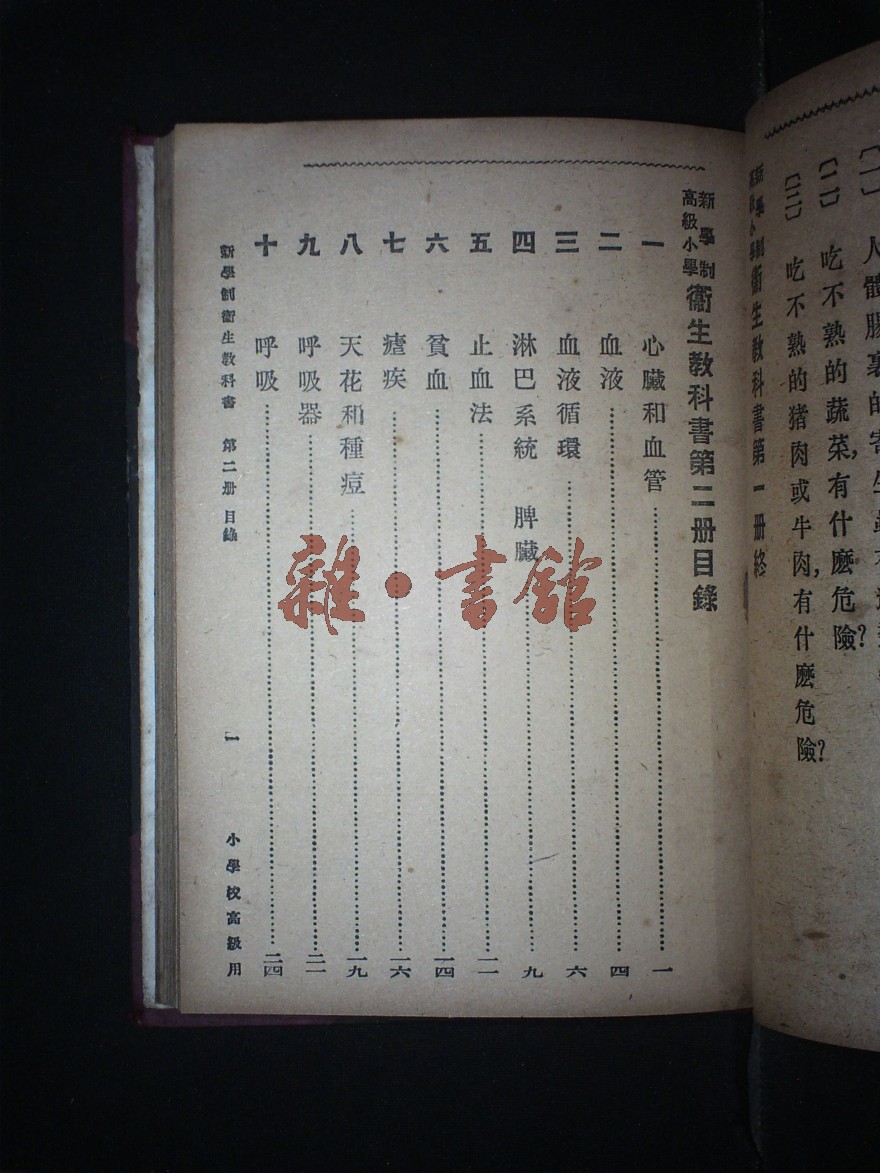 〔一〕　人體腸裏的寄生蟲
〔二〕　吃不熟的蔬菜，有什麽危險？
〔三〕　吃不熟的猪肉或牛肉，有什麽危險？
新學制高級小學衞生教科書第一册終
新學制高級小學衞生教科書第二册目錄
一　心臟和血管……一
二　血液……四
三　血液循環……六
四　淋巴系統　脾臟……九
五　止血法……一一
六　貧血……一四
七　瘧疾……一六
八　天花和種痘……一九
九　呼吸器……二一
十　呼吸……二四
新學制衞生教科書　第二册　目錄　一　小學校高級用
雜·書館